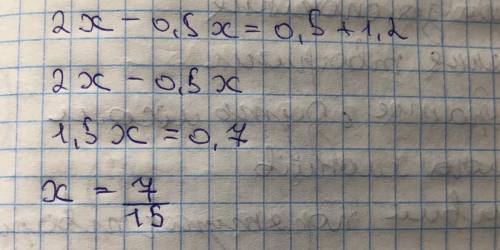 2x - 0,5x = 0,5 + 1,2
2x - 0,5x
1,5x = 0,7
x = 7/15